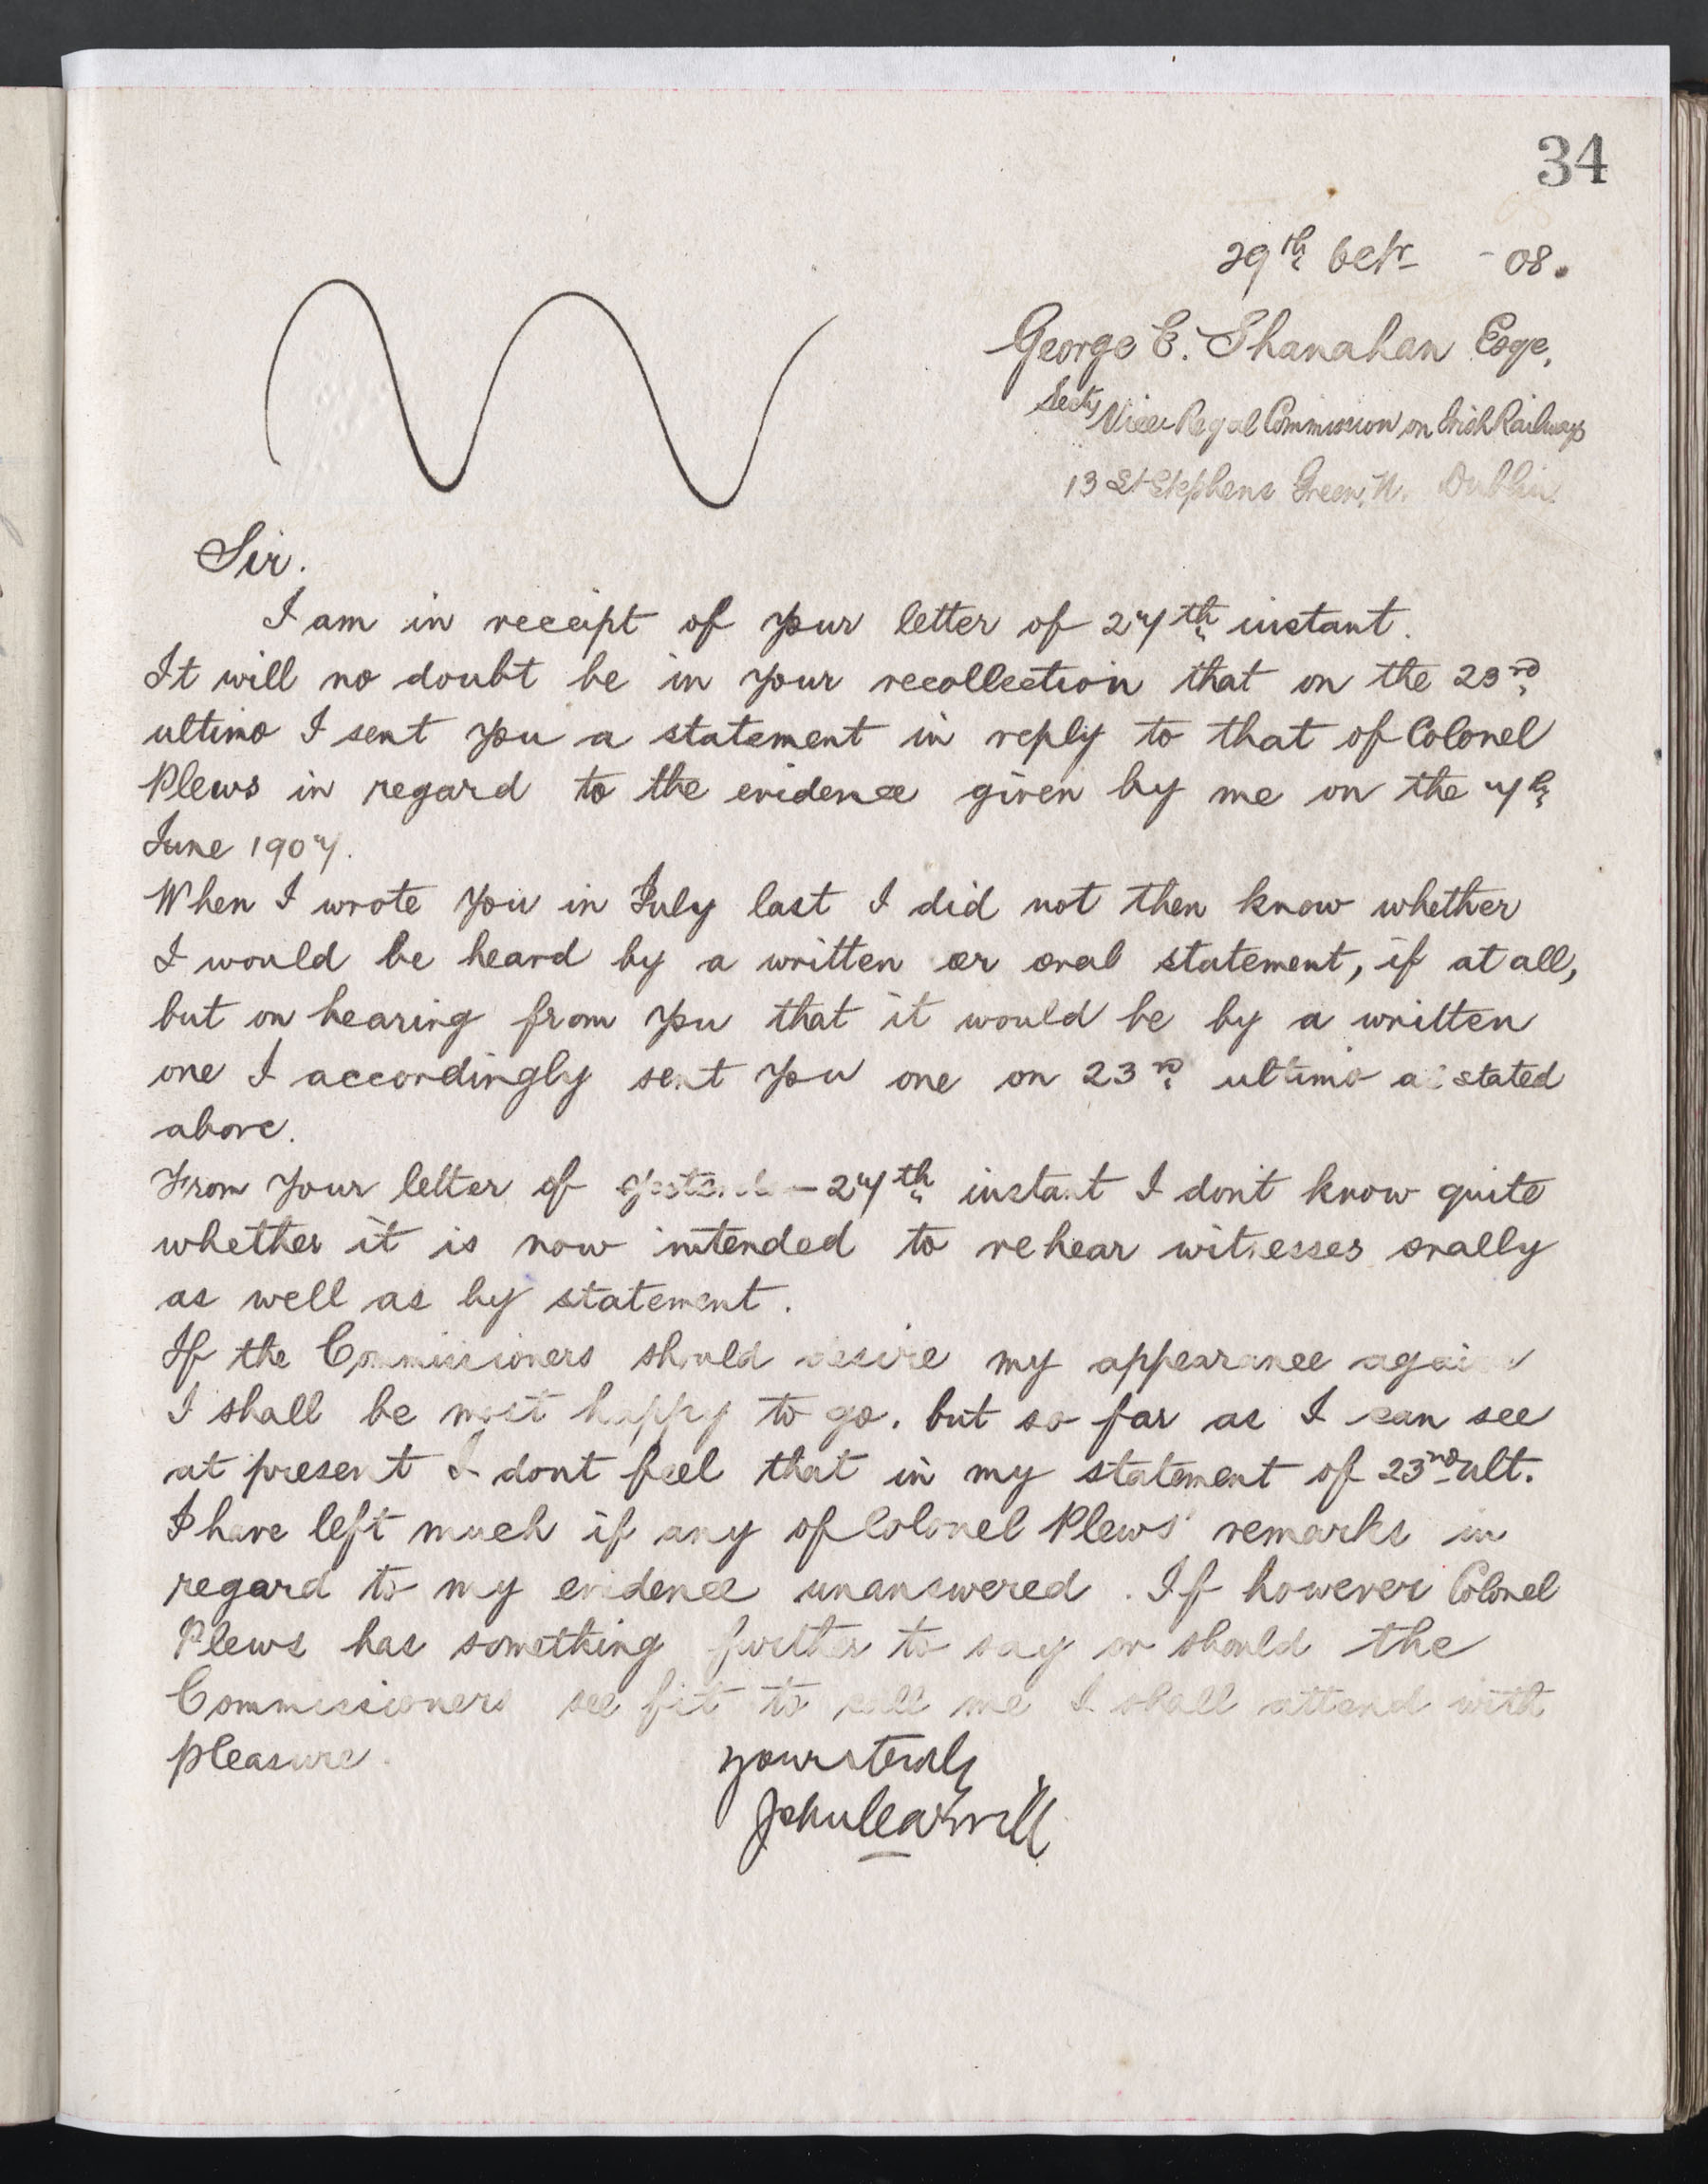 34
29th Octr -08.
George E. Shanahan Esqe,
Secty Vice-Regal Commission on Irish Railways
13 St Stephens Green, N. Dublin.
Sir.
I am in receipt of your letter of 27th instant.
It will no doubt be in your recollection that on the 23rd
ultimo I sent you a statement in reply to that of Colonel
Plews in regard to the evidence given by me on the 7th
June 1907.
When I wrote you in July last I did not then know whether
I would be heard by a written or oral statement, if at all,
but on hearing from you that it would be by a written
one I accordingly sent you one on 23rd ultimo as stated
above.
From your letter of 27th instant I dont know quite
whether it is now intended to rehear witnesses orally
as well as by statement.
If the Commissioners should desire my appearance again
I shall be most happy to go. but so far as I can see
at present I dont feel that in my statement of 23rd ult.
I have left much if any of Colonel Plews' remarks in
regard to my evidence unanswered. If however Colonel
Plews has something further to say or should the
Commissioners see fit to call me I shall attend with
pleasure.
yours truly
John